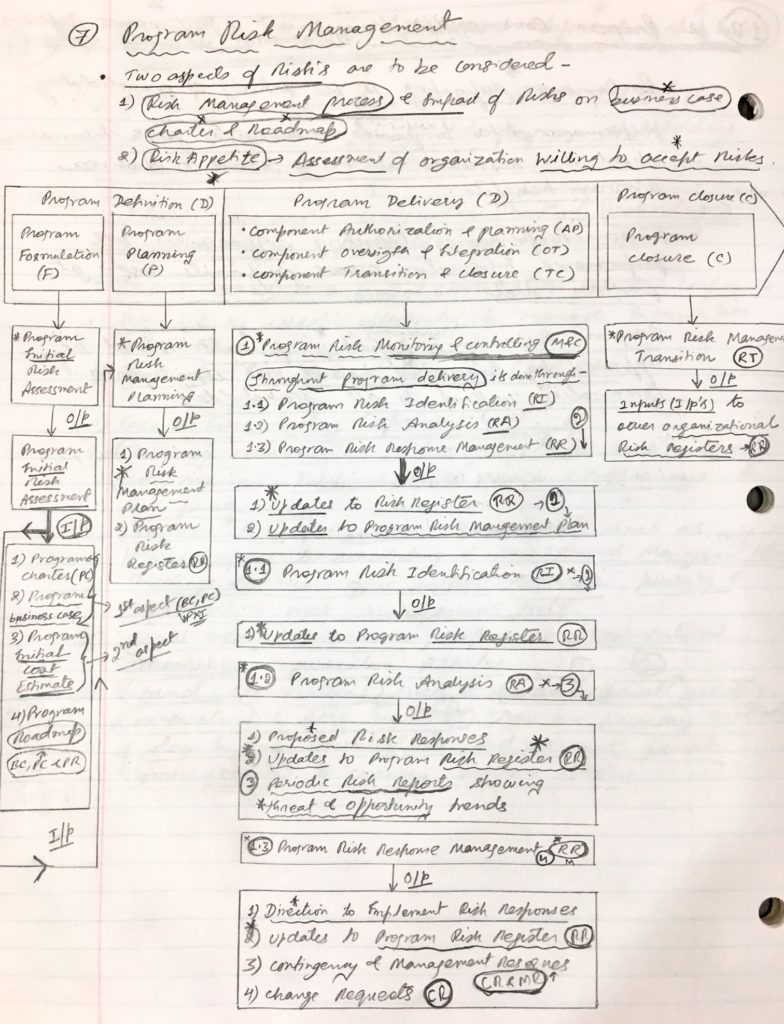 ⑦ Program Risk Management
• Two aspects of Risk's are to be considered -
1) Risk Management process & Impact of Risks on business case
charter & Roadmap
2) Risk Appetite → Assessment of organization willing to accept Risks.
Program Definition (D)
Program Formulation (F)
Program Planning (P)
Program Delivery (D)
• component Authorization & planning (AP)
• component oversight & Integration (OT)
• component Transition & closure (TC)
Program closure (C)
Program
closure (C)
*Program
Initial
Risk
Assessment
O/P
Program
Initial
Risk
Assessment
I/P
1) Program
charter (PC)
2) Program
business case
3) Program
Initial
Cost
Estimate
4) Program
Roadmap
BC, PC & PR
I/P
1st aspect (BC, PC
2nd aspect
* Program
Risk
Management
Planning
O/P
1) Program
* Risk
Management
Plan
2) Program
Risk
Register (RR)
① *Program Risk Monitoring & controlling (M&C)
Throughout Program delivery, its done through-
1.1) Program Risk Identification (RI)
1.2) Program Risk Analysis (RA) ②
1.3) Program Risk Response Management (RR)
O/P
1) *Updates to Risk Register (RR) → ①
2) Updates to Program Risk Management Plan
*1.1 Program Risk Identification (RI) *→
O/P
1) *Updates to Program Risk Register (RR)
*1.2 Program Risk Analysis (RA) *→ ③
O/P
1) Proposed Risk Responses
2) Updates to Program Risk Register (RR)
③ Periodic Risk Reports showing
*threat & opportunity trends
*1.3 Program Risk Response Management *RR
M M
O/P
1) Direction to Implement Risk Responses
2) Updates to Program Risk Register (RR)
3) contingency & Management Reserves
CR & MR ↑
4) change Requests (CR)
*Program Risk Manage
Transition (RT)
O/P
Inputs (I/P's) to
other organizational
Risk Registers → (RR)